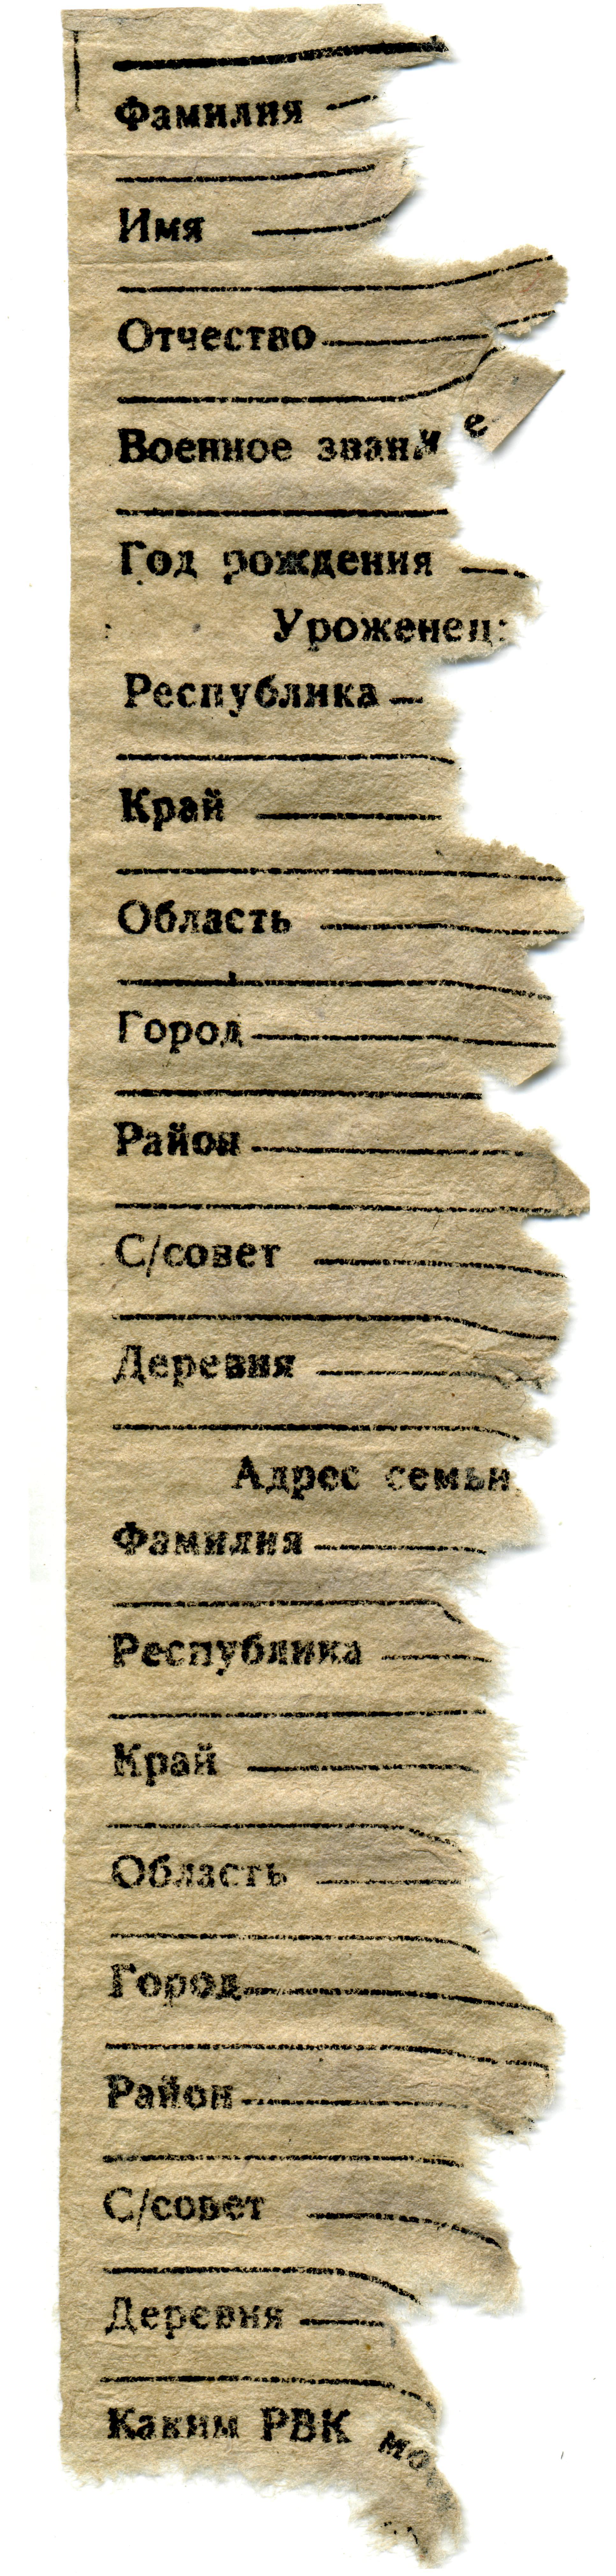 Фамилия
Имя
Отчество
Военное звание
Год рождения
Уроженец:
Республика
Край
Область
Город
Район
С/совет
Деревня
Адрес семьи
Фамилия
Республика
Край
Область
Город
Район
С/совет
Деревня
Каким РВК